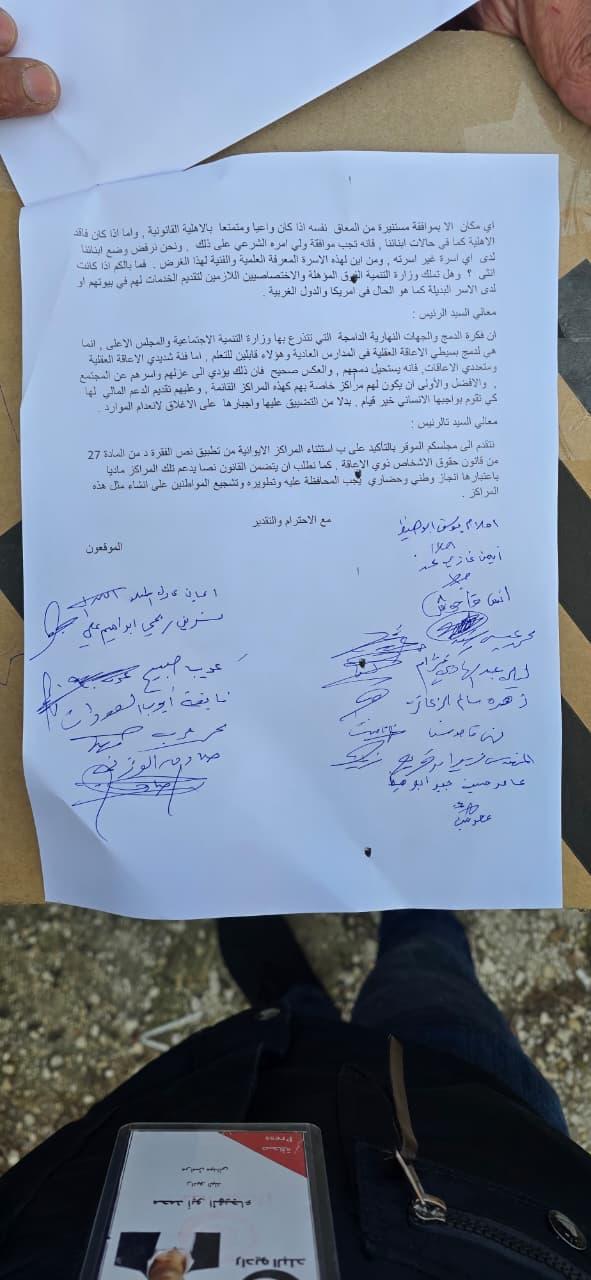 اي مكان الا بموافقة مستنيرة من المعاق نفسه اذا كان واعيا ومتمتعا بالاهلية القانونية , واما اذا كان فاقد
الاهلية كما في حالات ابنائنا , فانه تجب موافقة ولي امره الشرعي على ذلك . ونحن نرفض وضع ابنائنا
لدى أي اسرة غير اسرته , ومن اين لهذه الاسرة المعرفة العلمية والفنية لهذا الغرض . فما بالكم اذا كانت
انثى ؟ وهل تملك وزارة التنمية الفرق المؤهلة والاختصاصيين اللازمين لتقديم الخدمات لهم في بيوتهم او
لدى الاسر البديلة كما هو الحال في امريكا والدول الغربية .
معالي السيد الرئيس :
ان فكرة الدمج والجهات النهارية الدامجة التي تتذرع بها وزارة التنمية الاجتماعية والمجلس الاعلى , انما
هي لدمج بسيطي الاعاقة العقلية في المدارس العادية وهؤلاء قابلين للتعلم , اما فئة شديدي الاعاقة العقلية
ومتعددي الاعاقات, فانه يستحيل دمجهم , والعكس صحيح فان ذلك يؤدي الى عزلهم واسرهم عن المجتمع
, والافضل والأولى ان يكون لهم مراكز خاصة بهم كهذه المراكز القائمة , وعليهم تقديم الدعم المالي لها
كي تقوم بواجبها الانساني خير قيام . بدلا من التضييق عليها واجبارها على الاغلاق لانعدام الموارد .
معالي السيد تالرئيس :
نتقدم الى مجلسكم الموقر بالتأكيد على ب استثناء المراكز الايوائية من تطبيق نص الفقرة د من المادة 27
من قانون حقوق الاشخاص ذوي الاعاقة . كما نطلب ان يتضمن القانون نصا يدعم تلك المراكز ماديا
باعتبارها انجاز وطني وحضاري يجب المحافظة عليه وتطويره وتشجيع المواطنين على انشاء مثل هذه
المراكز .
مع الاحترام والتقدير
الموقعون
احلام يوسف
ايمن غازي
محمد عيسى
زهره سالم
المهندس
عامر حسين
ابراهيم علي
صبيح
نايفة أيوب السعودات
صحافة
Press
مراسل ميداني
راديو البلد
محمد أبو الهيجاء
راديو البلد